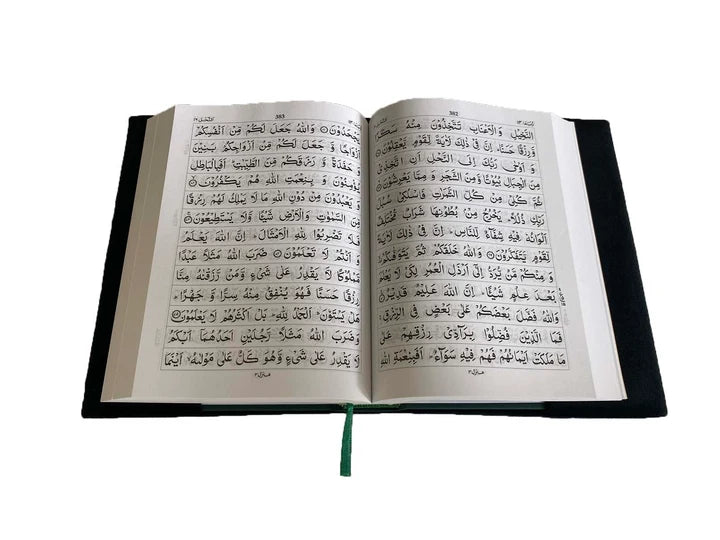 382
النَّخِيْلِ وَ الْاَعْنَابِ تَتَّخِذُوْنَ مِنْهُ سَكَرًا
وَّ رِزْقًا حَسَنًا ؕ اِنَّ فِىْ ذٰلِكَ لَاٰيَةً لِّقَوْمٍ يَّعْقِلُوْنَ
وَ اَوْحٰى رَبُّكَ اِلَى النَّحْلِ اَنِ اتَّخِذِىْ
مِنَ الْجِبَالِ بُيُوْتًا وَّ مِنَ الشَّجَرِ وَ مِمَّا يَعْرِشُوْنَ
ثُمَّ كُلِىْ مِنْ كُلِّ الثَّمَرٰتِ فَاسْلُكِىْ سُبُلَ
رَبِّكِ ذُلُلًا ؕ يَخْرُجُ مِنْۢ بُطُوْنِهَا شَرَابٌ مُّخْتَلِفٌ
اَلْوَانُهٗ فِيْهِ شِفَآءٌ لِّلنَّاسِ ؕ اِنَّ فِىْ ذٰلِكَ لَاٰيَةً
لِّقَوْمٍ يَّتَفَكَّرُوْنَ وَ اللّٰهُ خَلَقَكُمْ ثُمَّ يَتَوَفّٰىكُمْ
وَ مِنْكُمْ مَّنْ يُّرَدُّ اِلٰٓى اَرْذَلِ الْعُمُرِ لِكَىْ لَا يَعْلَمَ
بَعْدَ عِلْمٍ شَيْـًٔا ؕ اِنَّ اللّٰهَ عَلِيْمٌ قَدِيْرٌ
وَ اللّٰهُ فَضَّلَ بَعْضَكُمْ عَلٰى بَعْضٍ فِى الرِّزْقِ ۚ
فَمَا الَّذِيْنَ فُضِّلُوْا بِرَآدِّىْ رِزْقِهِمْ عَلٰى
مَا مَلَكَتْ اَيْمَانُهُمْ فَهُمْ فِيْهِ سَوَآءٌ ؕ اَفَبِنِعْمَةِ اللّٰهِ
منزل ٣
383
يَجْحَدُوْنَ وَ اللّٰهُ جَعَلَ لَكُمْ مِّنْ اَنْفُسِكُمْ
اَزْوَاجًا وَّ جَعَلَ لَكُمْ مِّنْ اَزْوَاجِكُمْ بَنِيْنَ
وَ حَفَدَةً وَّ رَزَقَكُمْ مِّنَ الطَّيِّبٰتِ ؕ اَفَبِالْبَاطِلِ
يُؤْمِنُوْنَ وَ بِنِعْمَتِ اللّٰهِ هُمْ يَكْفُرُوْنَ
وَ يَعْبُدُوْنَ مِنْ دُوْنِ اللّٰهِ مَا لَا يَمْلِكُ لَهُمْ رِزْقًا
مِّنَ السَّمٰوٰتِ وَ الْاَرْضِ شَيْـًٔا وَّ لَا يَسْتَطِيْعُوْنَ
فَلَا تَضْرِبُوْا لِلّٰهِ الْاَمْثَالَ ؕ اِنَّ اللّٰهَ يَعْلَمُ
وَ اَنْتُمْ لَا تَعْلَمُوْنَ ضَرَبَ اللّٰهُ مَثَلًا عَبْدًا
مَّمْلُوْكًا لَّا يَقْدِرُ عَلٰى شَىْءٍ وَّ مَنْ رَّزَقْنٰهُ مِنَّا
رِزْقًا حَسَنًا فَهُوَ يُنْفِقُ مِنْهُ سِرًّا وَّ جَهْرًا ؕ
هَلْ يَسْتَوٗنَ ؕ اَلْحَمْدُ لِلّٰهِ ؕ بَلْ اَكْثَرُهُمْ لَا يَعْلَمُوْنَ
وَ ضَرَبَ اللّٰهُ مَثَلًا رَّجُلَيْنِ اَحَدُهُمَاۤ اَبْكَمُ
لَا يَقْدِرُ عَلٰى شَىْءٍ وَّ هُوَ كَلٌّ عَلٰى مَوْلٰىهُ ۙ اَيْنَمَا
منزل ٣